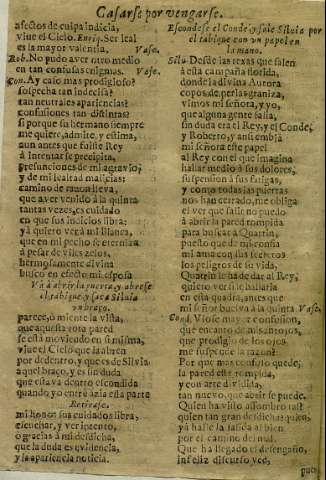 Casarse por vengarse.
afectos de culpa indicia,
viue el Cielo. Enriq. Ser leal
es la mayor valentia. Vase.
Rob. No pudo aver otro medio
en tan confusas enigmas. Vase.
Con. Ay caso mas prodigioso?
sospecha tan indecisa?
tan neutrales apariencias?
confusiones tan distintas?
si porque su hermano siempre
me quiere, admite, y estima,
aun antes que fuesse Rey
à intentar se precipita,
presunciones de mi agravio;
y de mi lealtad malicias:
camino de razon lleva,
que aver venido à la quinta
tantas vezes, es cuidado
en que sus indicios libra:
yà quiero ver à mi Blanca,
que en mi pecho se eterniza
à pesar de viles zelos,
hermosamente divina
busco en efecto mi esposa
Và à abrir la puerta, y abrese
el tabique y saca Silvia
un braço.
parece, ò miente la vista,
que aquesta rota pared
se està moviendo en si misma,
viue el Cielo que la abren
por de dentro, y que es de Silvia
aquel braço, y es sin duda
que estava dentro escondida
quando yo entrè azia esta parte
Retirase.
mi honor sus cuidados libra,
escuchar, y ver intento,
o gracias à mi desdicha,
que la duda es evidencia,
y la apariencia noticia.
Escondese el Conde, y sale Silvia por
el tabique con un papel en
la mano.
Silv. Desde las texas que salen
à esta campaña florida,
donde la divina Aurora
copos de perlas graniza,
vimos mi señora, y yo,
que alguna gente salia,
sin duda era el Rey, y el Conde,
y Roberto, y assi embia
mi señora este papel
al Rey con el que imagina
hallar medio à sus dolores,
suspension à sus fatigas,
y como todas las puertas
nos han cerrado, me obliga
el ver que salir no puedo
à abrir la pared rompida
para buscar à Quatrin,
puesto que de mi confia
mi ama con sus secretos
los peligros de su vida,
Quatrin le ha de dar al Rey,
quiero ver si le hallaria
en esta quadra, antes que
mi señor buelva à la quinta Vase.
Cond. Viose mayor confusion,
que encanto de mis antojos,
que prodigio de los ojos
me suspende la razon?
Por que mas confuso quede,
la pared esta rompida,
y con arte dividida,
tan nuevo, que abrir se puede.
Quien ha visto assombro tal?
quien tan gran desdichas quien,
yà halle la salida al bien
por el camino del mal.
Que ha llegado el desengaño,
infeliz discurso vee,
pues